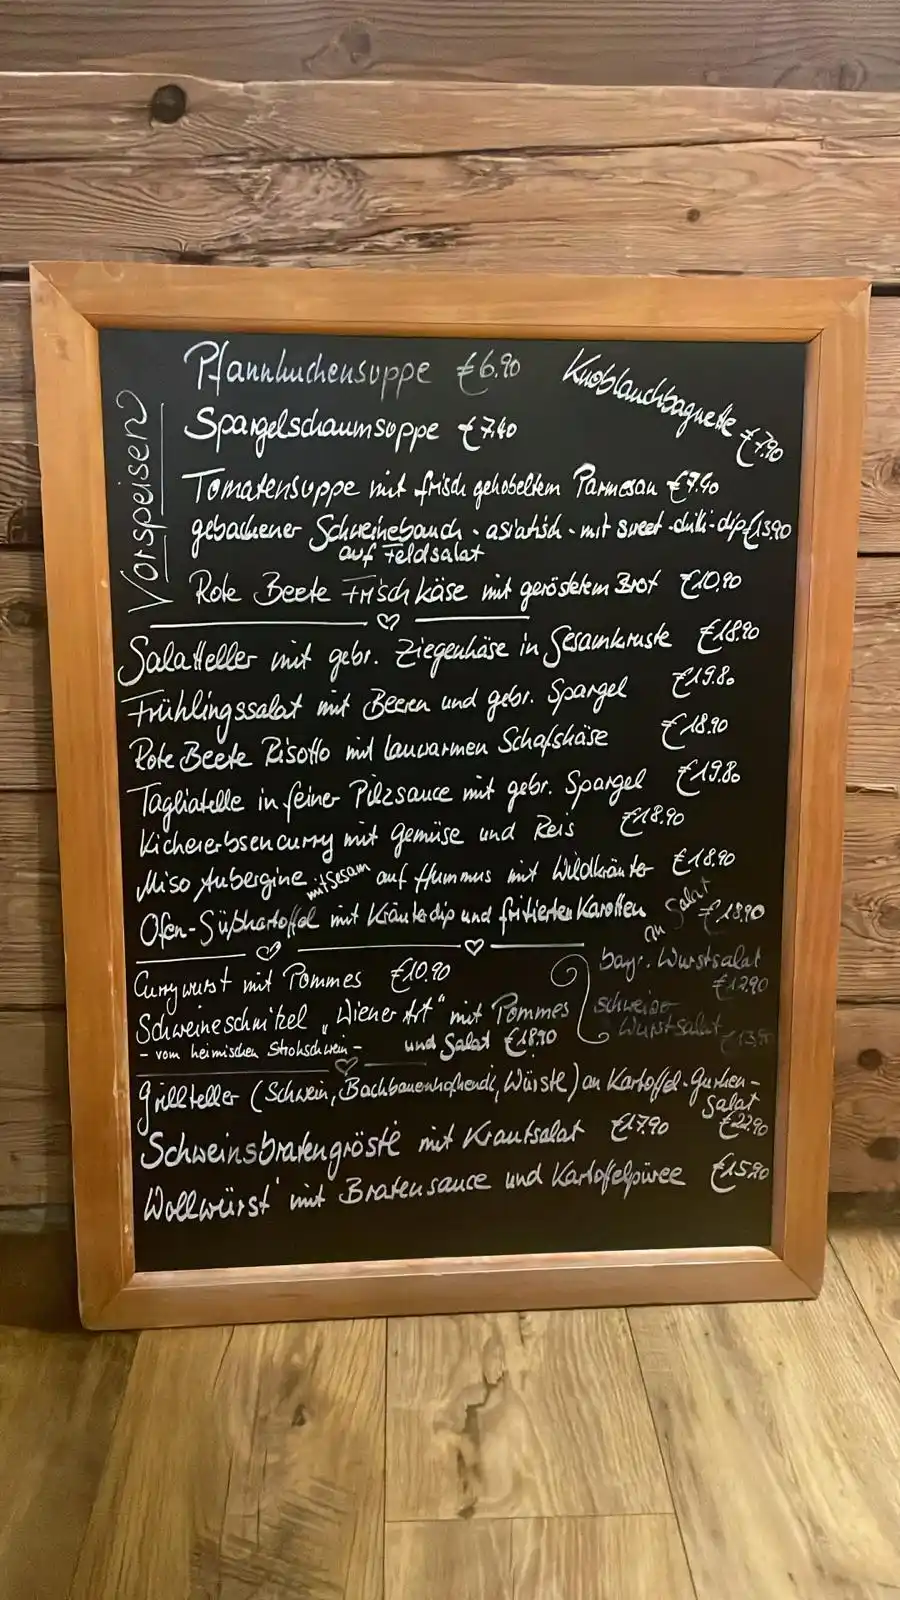 Vorspeisen
Pfannkuchensuppe €6.90
Knoblauchbaguette €7.90
Spargelschaumsuppe €7.40
Tomatensuppe mit frisch gehobeltem Parmesan €7.40
gebackener Schweinebauch - asiatisch - mit sweet-chili-dip €13.90
auf Feldsalat
Rote Beete Frischkäse mit geröstetem Brot €10.90
Salatteller mit gebr. Ziegenkäse in Sesamkruste €18.90
Frühlingssalat mit Beeren und gebr. Spargel €19.80
Rote Beete Risotto mit lauwarmen Schafskäse €18.90
Tagliatelle in feiner Pilzsauce mit gebr. Spargel €19.80
Kichererbsencurry mit Gemüse und Reis €18.90
Miso Aubergine mit Sesam auf Hummus mit Wildkräuter €18.90
Ofen-Süßkartoffel mit Kräuterdip und fritierten Karotten an Salat €18.90
Currywurst mit Pommes €10.90
bayr. Wurstsalat
€12.90
Schweineschnitzel „Wiener Art" mit Pommes
- vom heimischen Strohschwein - und Salat €18.90
schweizer
Wurstsalat €13.90
Grillteller (Schwein, Bachbauernhofhendl, Würstl) an Kartoffel-Gurken-
Salat
€22.90
Schweinsbratengröstl mit Krautsalat €17.90
Wollwürst' mit Bratensauce und Kartoffelpüree €15.20